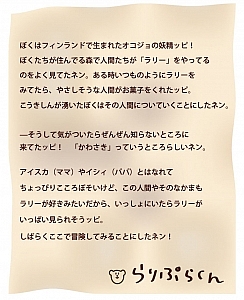 ぼくはフィンランドで生まれたオコジョの妖精ッピ！
ぼくたちが住んでる森で人間たちが「ラリー」をやってる
のをよく見てたネン。ある時いつものようにラリーを
みてたら、やさしそうな人間がお菓子をくれたッピ。
こうきしんが湧いたぼくはその人間についていくことにしたネン。
―そうして気がついたらぜんぜん知らないところに
来てたッピ！　「かわさき」っていうところらしいネン。
アイスカ（ママ）やイシィ（パパ）とはなれて
ちょっぴりこころぼそいけど、この人間やそのなかまも
ラリーが好きみたいだから、いっしょにいたらラリーが
いっぱい見られそうッピ。
しばらくここで冒険してみることにしたネン！
らりぷらくん